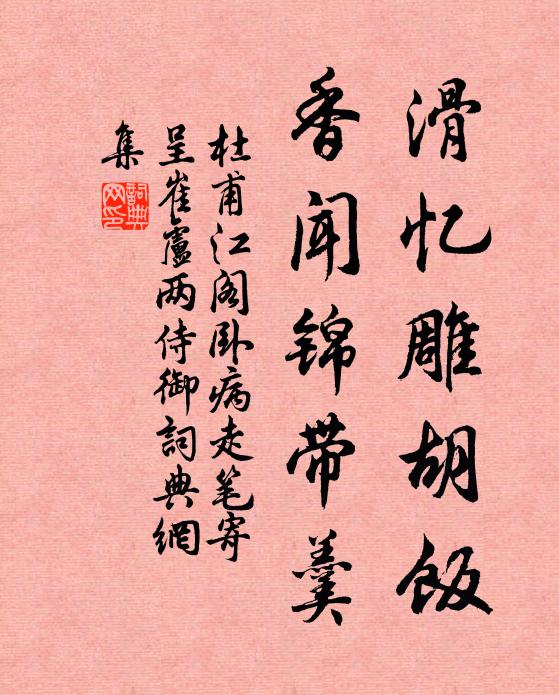 滑忆雕胡饭
香闻锦带羹
杜甫江阁卧病走笔寄
呈崔卢两侍御詞典網
集
詞典
网印